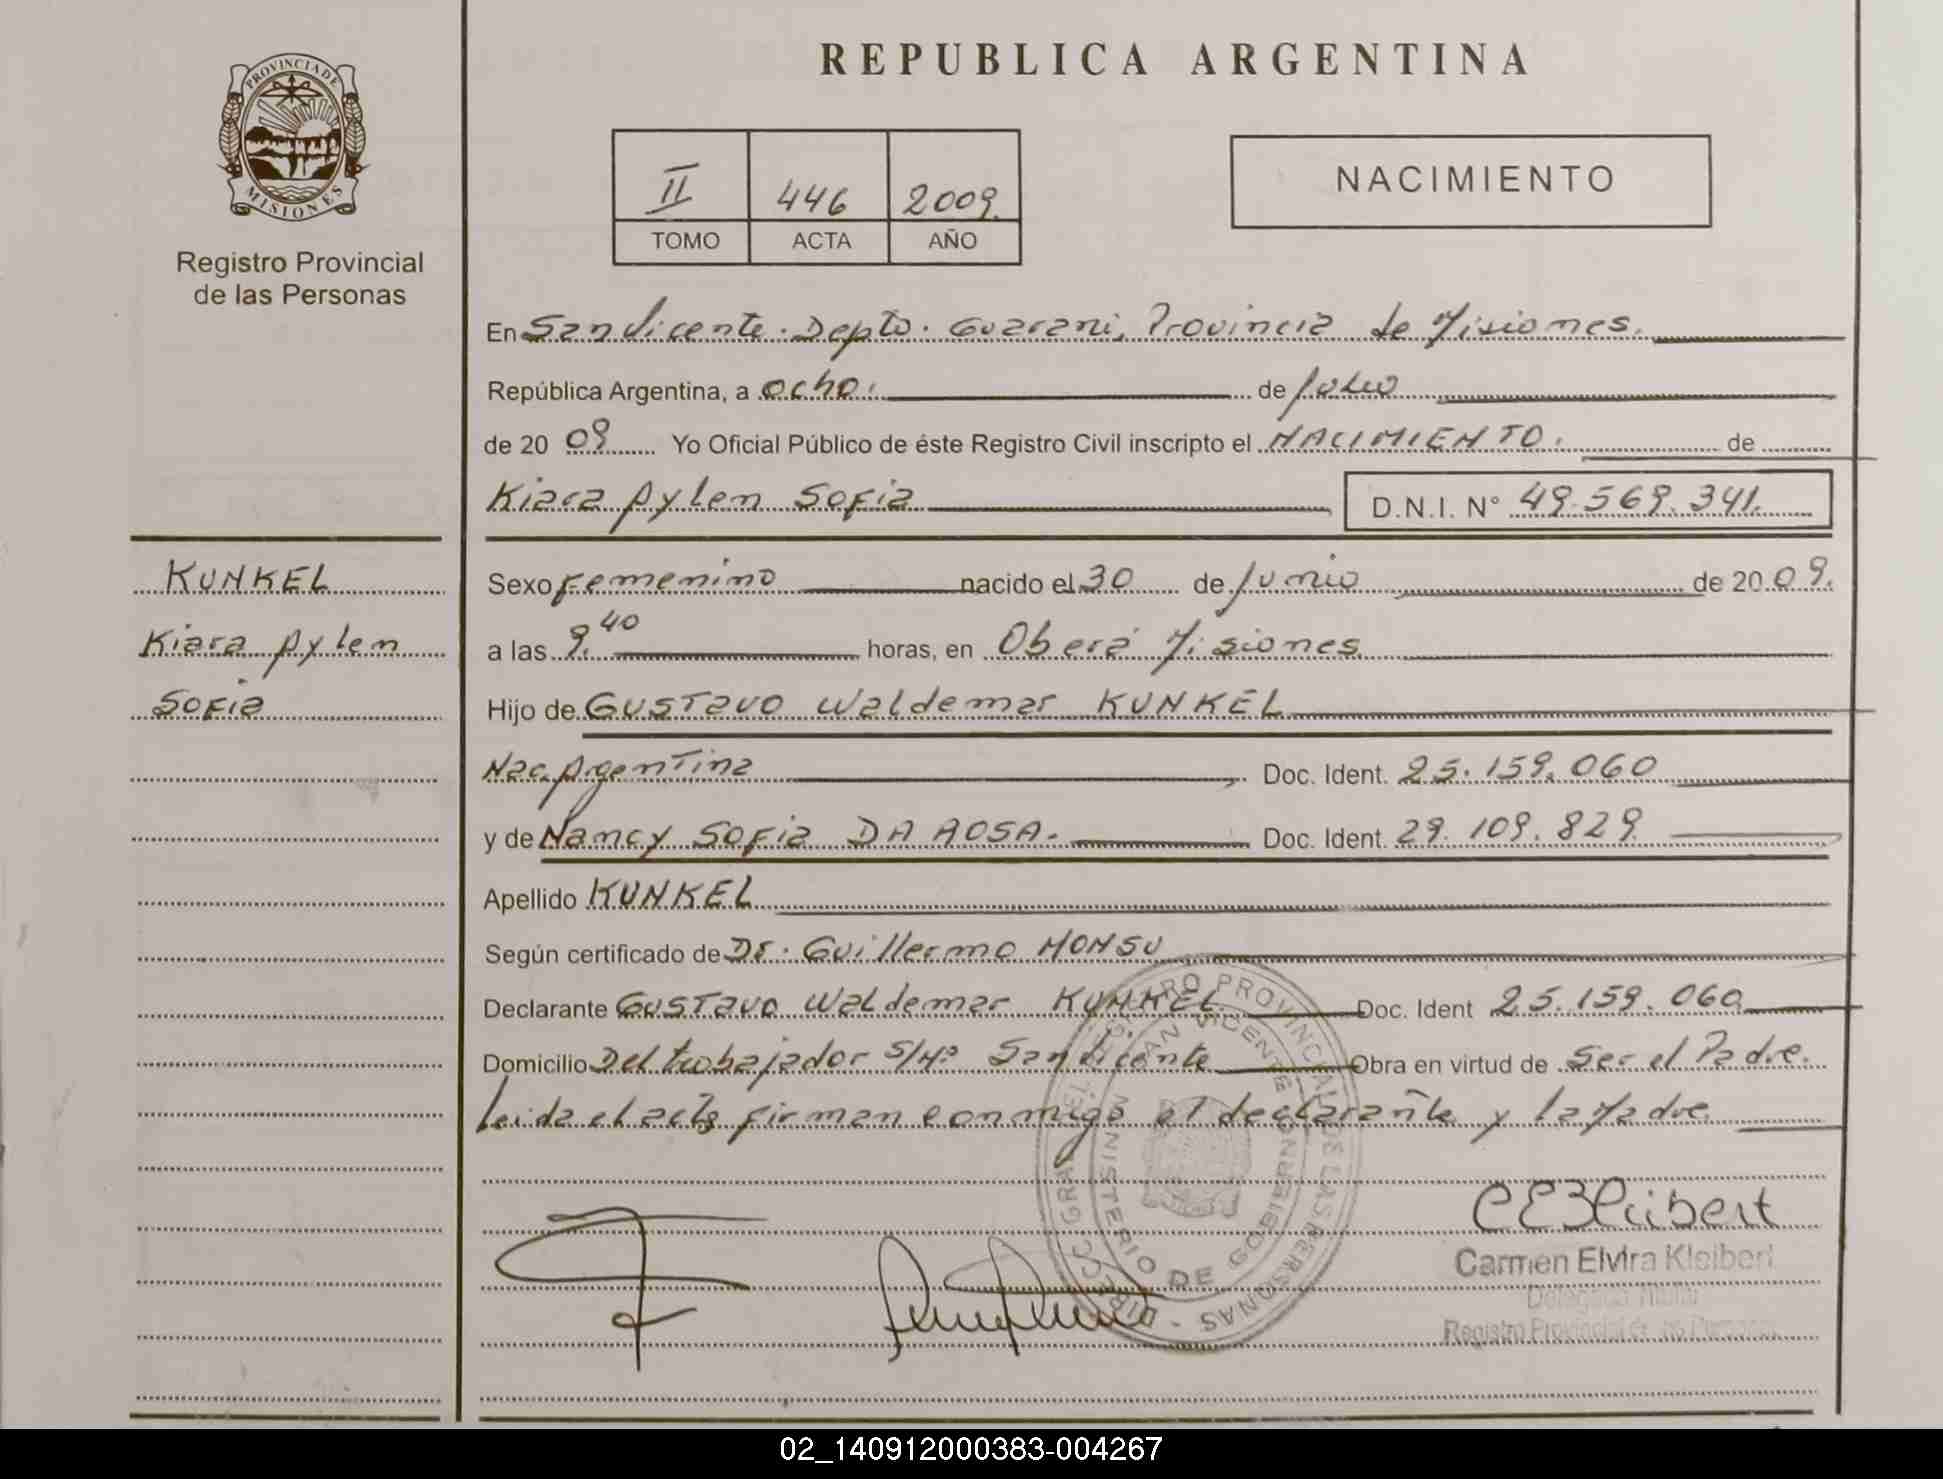 PROVINCIA DE
MISIONES
Registro Provincial
de las Personas
REPUBLICA ARGENTINA
II 446 2009
TOMO ACTA AÑO
NACIMIENTO
En San Vicente. Depto. Guarani, Provincia de Misiones.
República Argentina, a ocho. de Julio
de 20 09 Yo Oficial Público de éste Registro Civil inscripto el NACIMIENTO. de
Kiara Aylen Sofia D.N.I. N° 49.569.341.
KUNKEL
Kiara Aylen
Sofia
Sexo Femenino nacido el 30 de Junio de 20 09.
a las 9.40 horas, en Oberá Misiones
Hijo de Gustavo Waldemar KUNKEL
Nac. Argentina Doc. Ident. 25.159.060
y de Nancy Sofia DA ROSA. Doc. Ident. 29.109.829
Apellido KUNKEL
Según certificado de Dr. Guillermo MONSU
Declarante Gustavo Waldemar KUNKEL Doc. Ident 25.159.060
Domicilio Del trabajador S/Nº San Vicente Obra en virtud de Ser el Padre.
Leida el acta firman conmigo el declarante y la Madre
REGISTRO PROVINCIAL DE LAS PERSONAS
SAN VICENTE
MINISTERIO DE GOBIERNO
Carmen Elvira Kleibert
Registro Provincial de las Personas
02_140912000383-004267